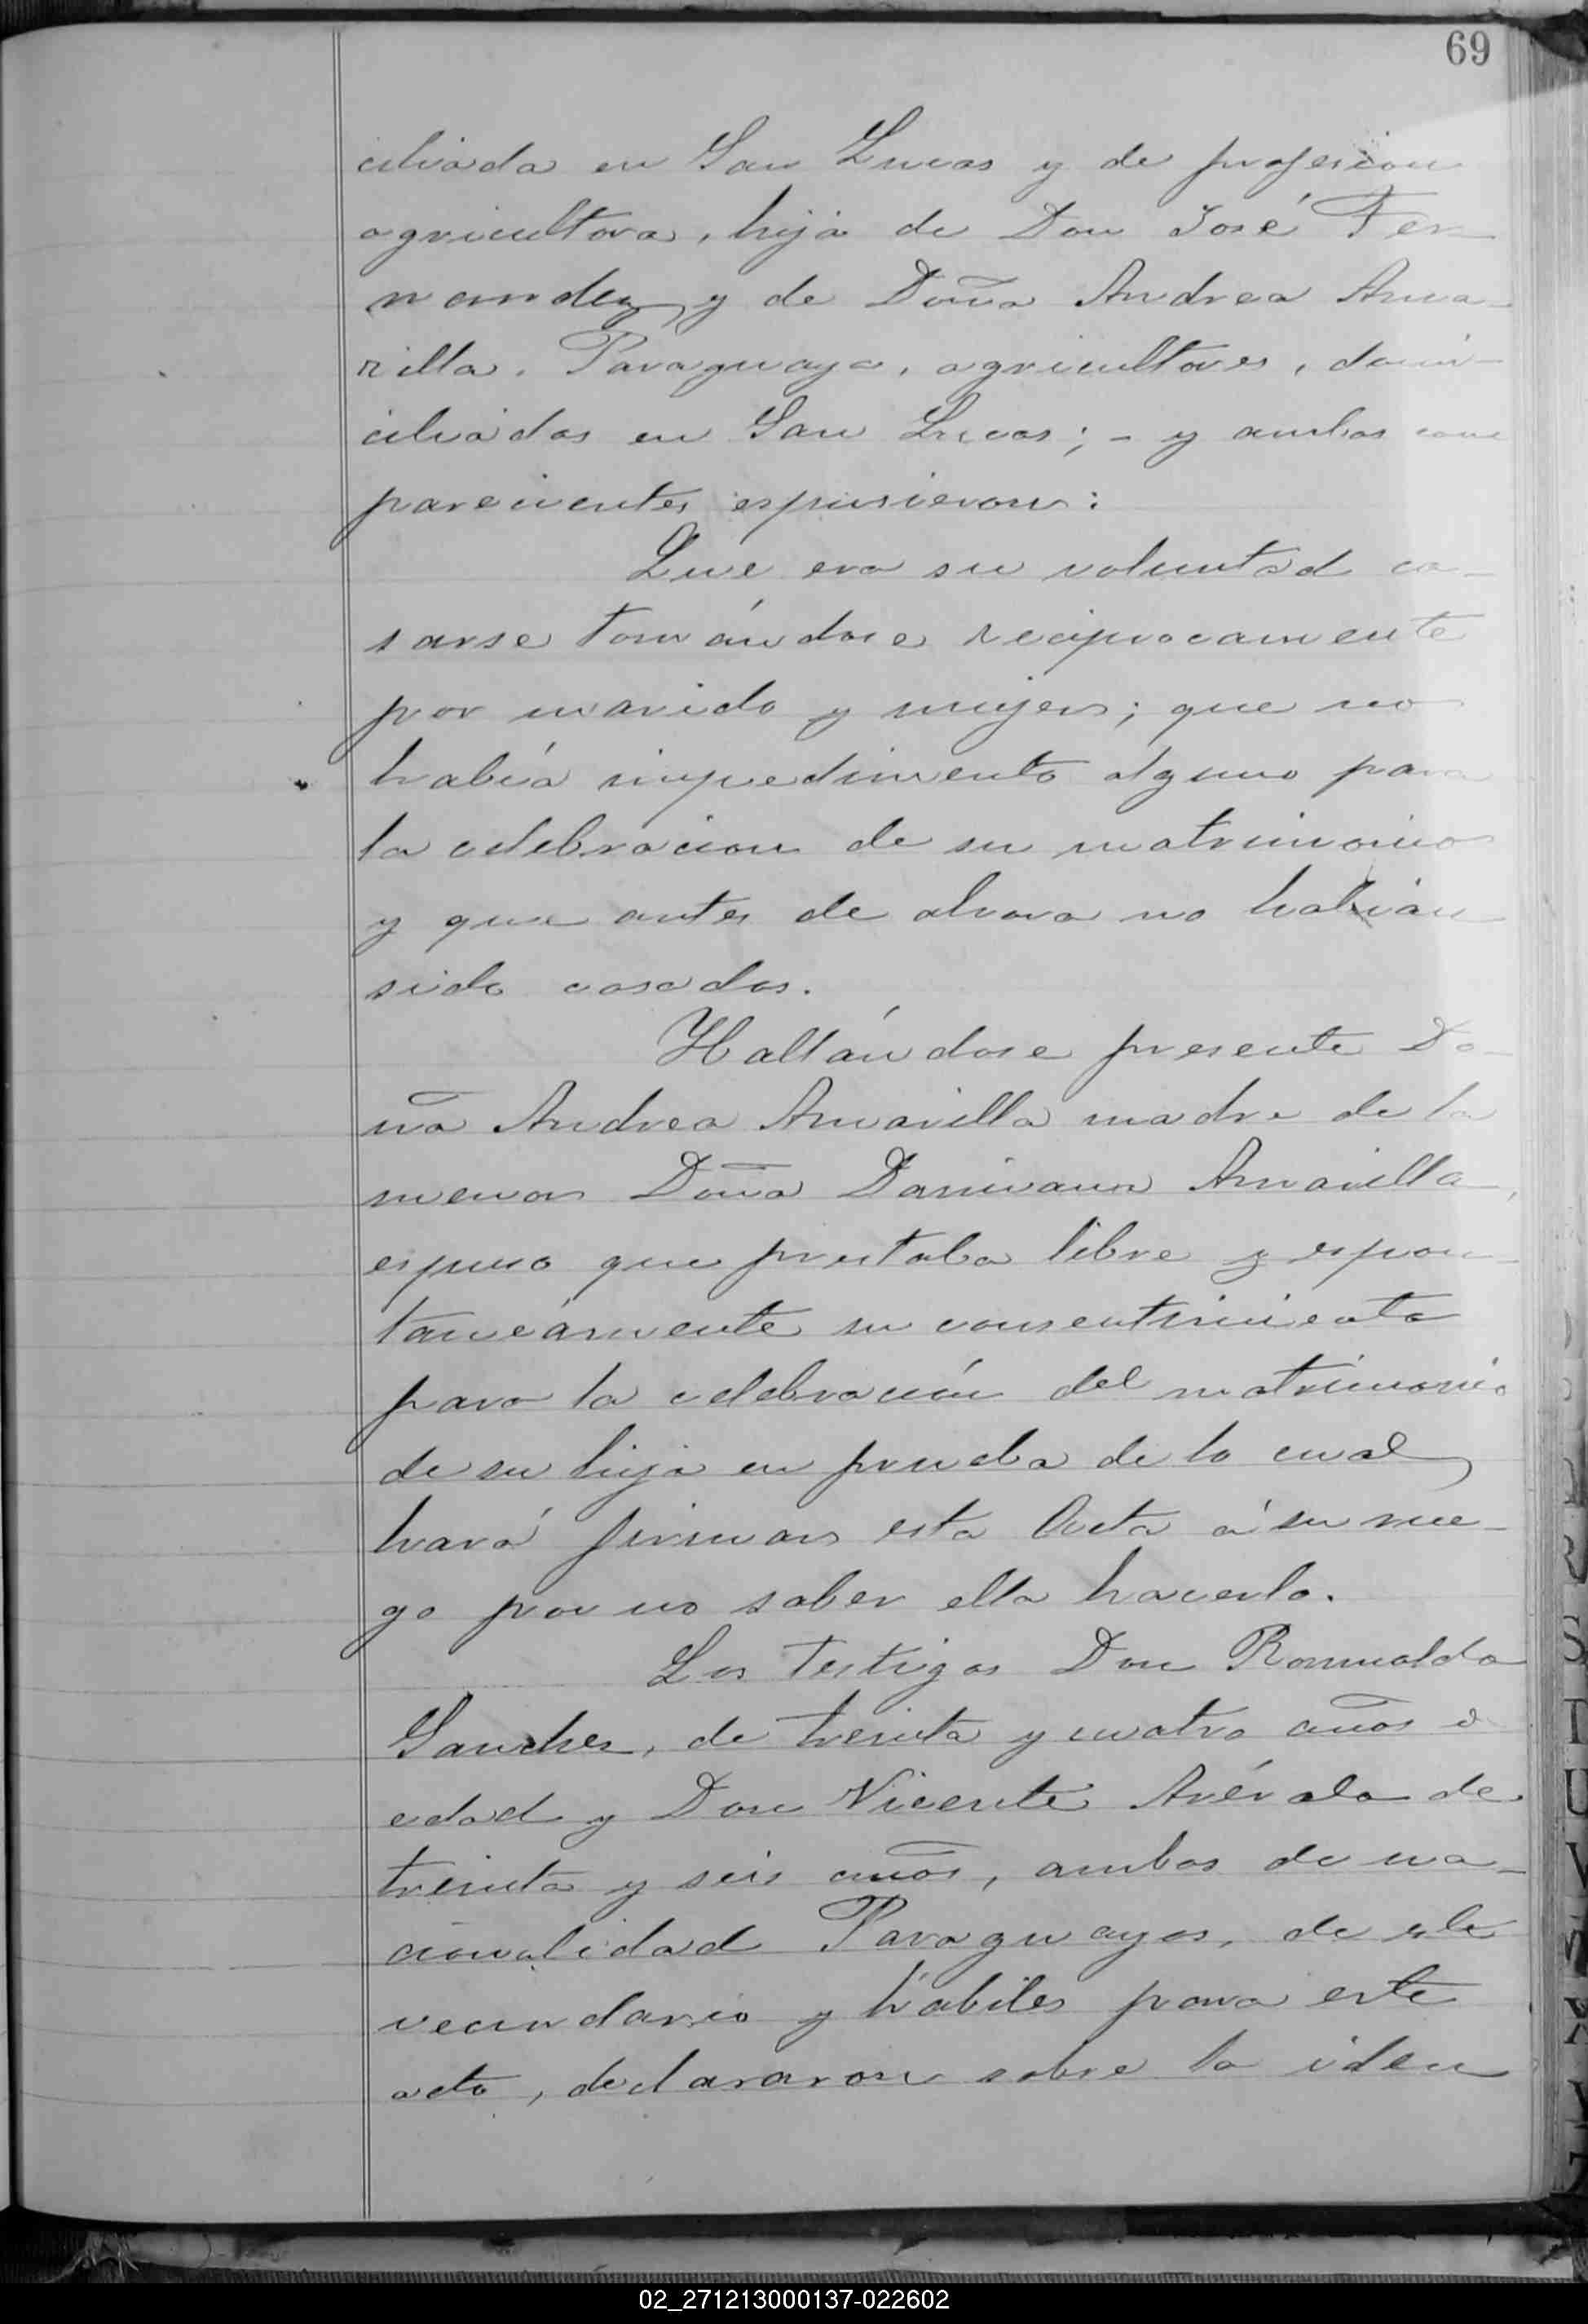 69
ciliada en San Lucas y de profesion
agricultora, hija de Don José Fer-
nandez y de Doña Andrea Ama-
rilla, Paraguaya, agricultores, domi-
ciliados en San Lucas; - y ambos com
parecientes espusieron:
Que era su voluntad ca-
sarse tomándose reciprocamente
por marido y mujer; que no
había impedimento alguno para
la celebracion de su matrimonio
y que antes de ahora no habian
sido casados.
Hallándose presente Do-
ña Andrea Amarilla madre de la
menor Doña Amarilla,
espuso que prestaba libre y espon-
táneamente su consentimiento
para la celebración del matrimonio
de su hija en prueba de lo cual
hará firmar esta Acta á su rue-
go por no saber ella hacerlo.
Los testigos Don Romualdo
Sanches, de treinta y cuatro años d
edad y Don Vicente Arévalo de
treinta y seis años, ambos de na-
cionalidad Paraguayos, de este
vecindario y hábiles para este
acto, declararon sobre la iden
02_271213000137-022602